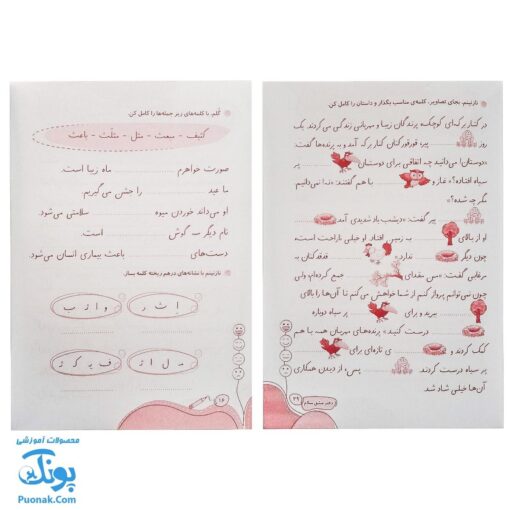 نازنینم، بجای تصاویر، کلمه‌ی مناسب بگذار و داستان را کامل کن.
در کنار برکه‌ای کوچک، پرندگان زیبا و مهربانی زندگی می‌کردند. یک
روز پیر، قورقورکنان کنار برکه آمد و به پرنده‌ها گفت:
«دوستان! می‌دانید چه اتفاقی برای دوستتان پر
سیاه افتاده؟» غاز و با هم گفتند: «نه! نمی‌دانیم
مگر چه شده؟»
پیر گفت: «دیشب باد شدیدی آمد
او از بالای به زمین افتاد. او خیلی ناراحت است،
چون دیگر ندارد.» قدقدکنان به
مرغابی گفت: «من مقداری جمع کرده‌ام، ولی
چون نمی‌توانم پرواز کنم از شما خواهش می‌کنم تا آن‌ها را بالای
ببرید و برای پر سیاه دوباره
درست کنید.» پرنده‌های مهربان همه با هم
کمک کردند و ی تازه‌ای برای
پر سیاه درست کردند. پس، از دیدن همکاری
آن‌ها خیلی شاد شد.
۲۹
دفتر مشق سلام
گلم، با کلمه‌های زیر جمله‌ها را کامل کن.
کثیف - مبعث - مثل - مثلث - باعث
صورت خواهرم ماه زیبا است.
ما عید را جشن می‌گیریم.
او می‌داند خوردن میوه سلامتی می‌شود.
نام دیگر سه گوش است.
دست‌های باعث بیماری انسان می‌شود.
نازنینم با نشانه‌های درهم ریخته کلمه بساز.
۱۶
محصولات آموزشی
پونک
Puonak.Com